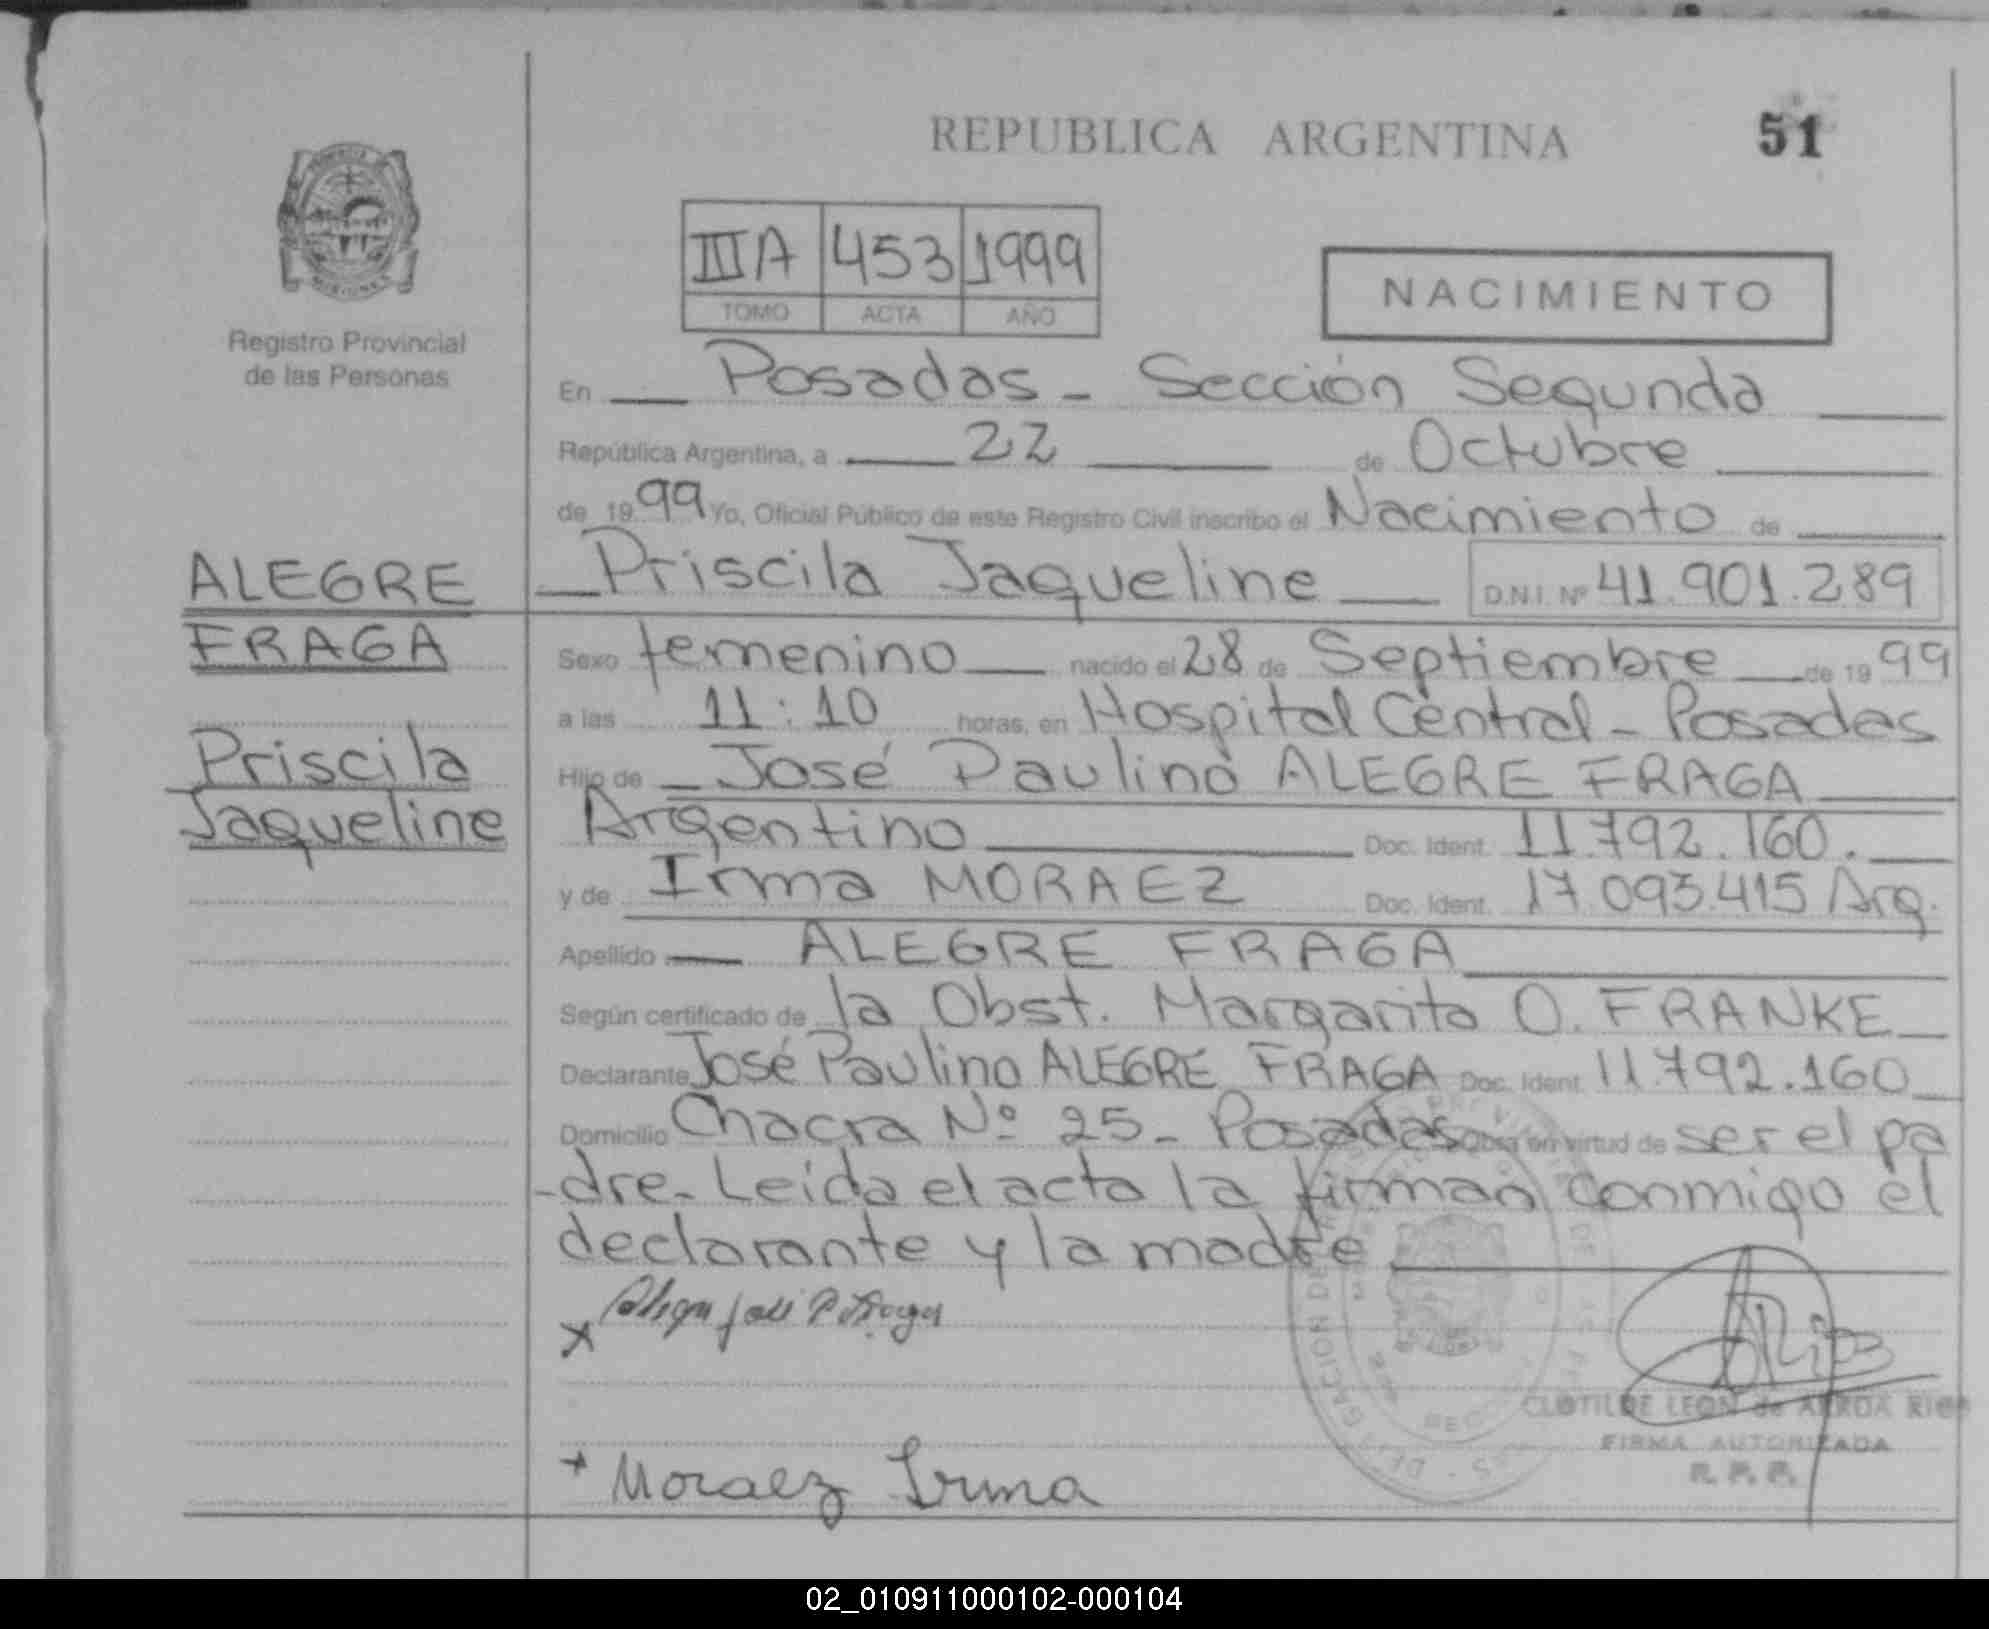 REPUBLICA ARGENTINA
51
Registro Provincial
de las Personas
IIIA 453 1999
TOMO ACTA AÑO
NACIMIENTO
En Posadas - Sección Segunda
República Argentina, a 22 de Octubre
de 1999 Yo, Oficial Público de este Registro Civil inscribo el Nacimiento de
Priscila Jaqueline D.N.I. Nº 41.901.289
ALEGRE
FRAGA
Priscila
Jaqueline
Sexo femenino nacido el 28 de Septiembre de 1999
a las 11:10 horas, en Hospital Central - Posadas
Hijo de José Paulino ALEGRE FRAGA
Argentino Doc. Ident. 11.792.160.
y de Irma MORAEZ Doc. Ident. 17.093.415 Arg.
Apellido ALEGRE FRAGA
Según certificado de la Obst. Margarita O. FRANKE
Declarante José Paulino ALEGRE FRAGA Doc. Ident. 11.792.160
Domicilio Chacra Nº 25 - Posadas Obra en virtud de ser el pa
-dre. Leída el acta la firman conmigo el
declarante y la madre
x
+ Moraez Irma
CLOTILDE LEON de ARRUA RIOS
FIRMA AUTORIZADA
R. P. P.
02_010911000102-000104